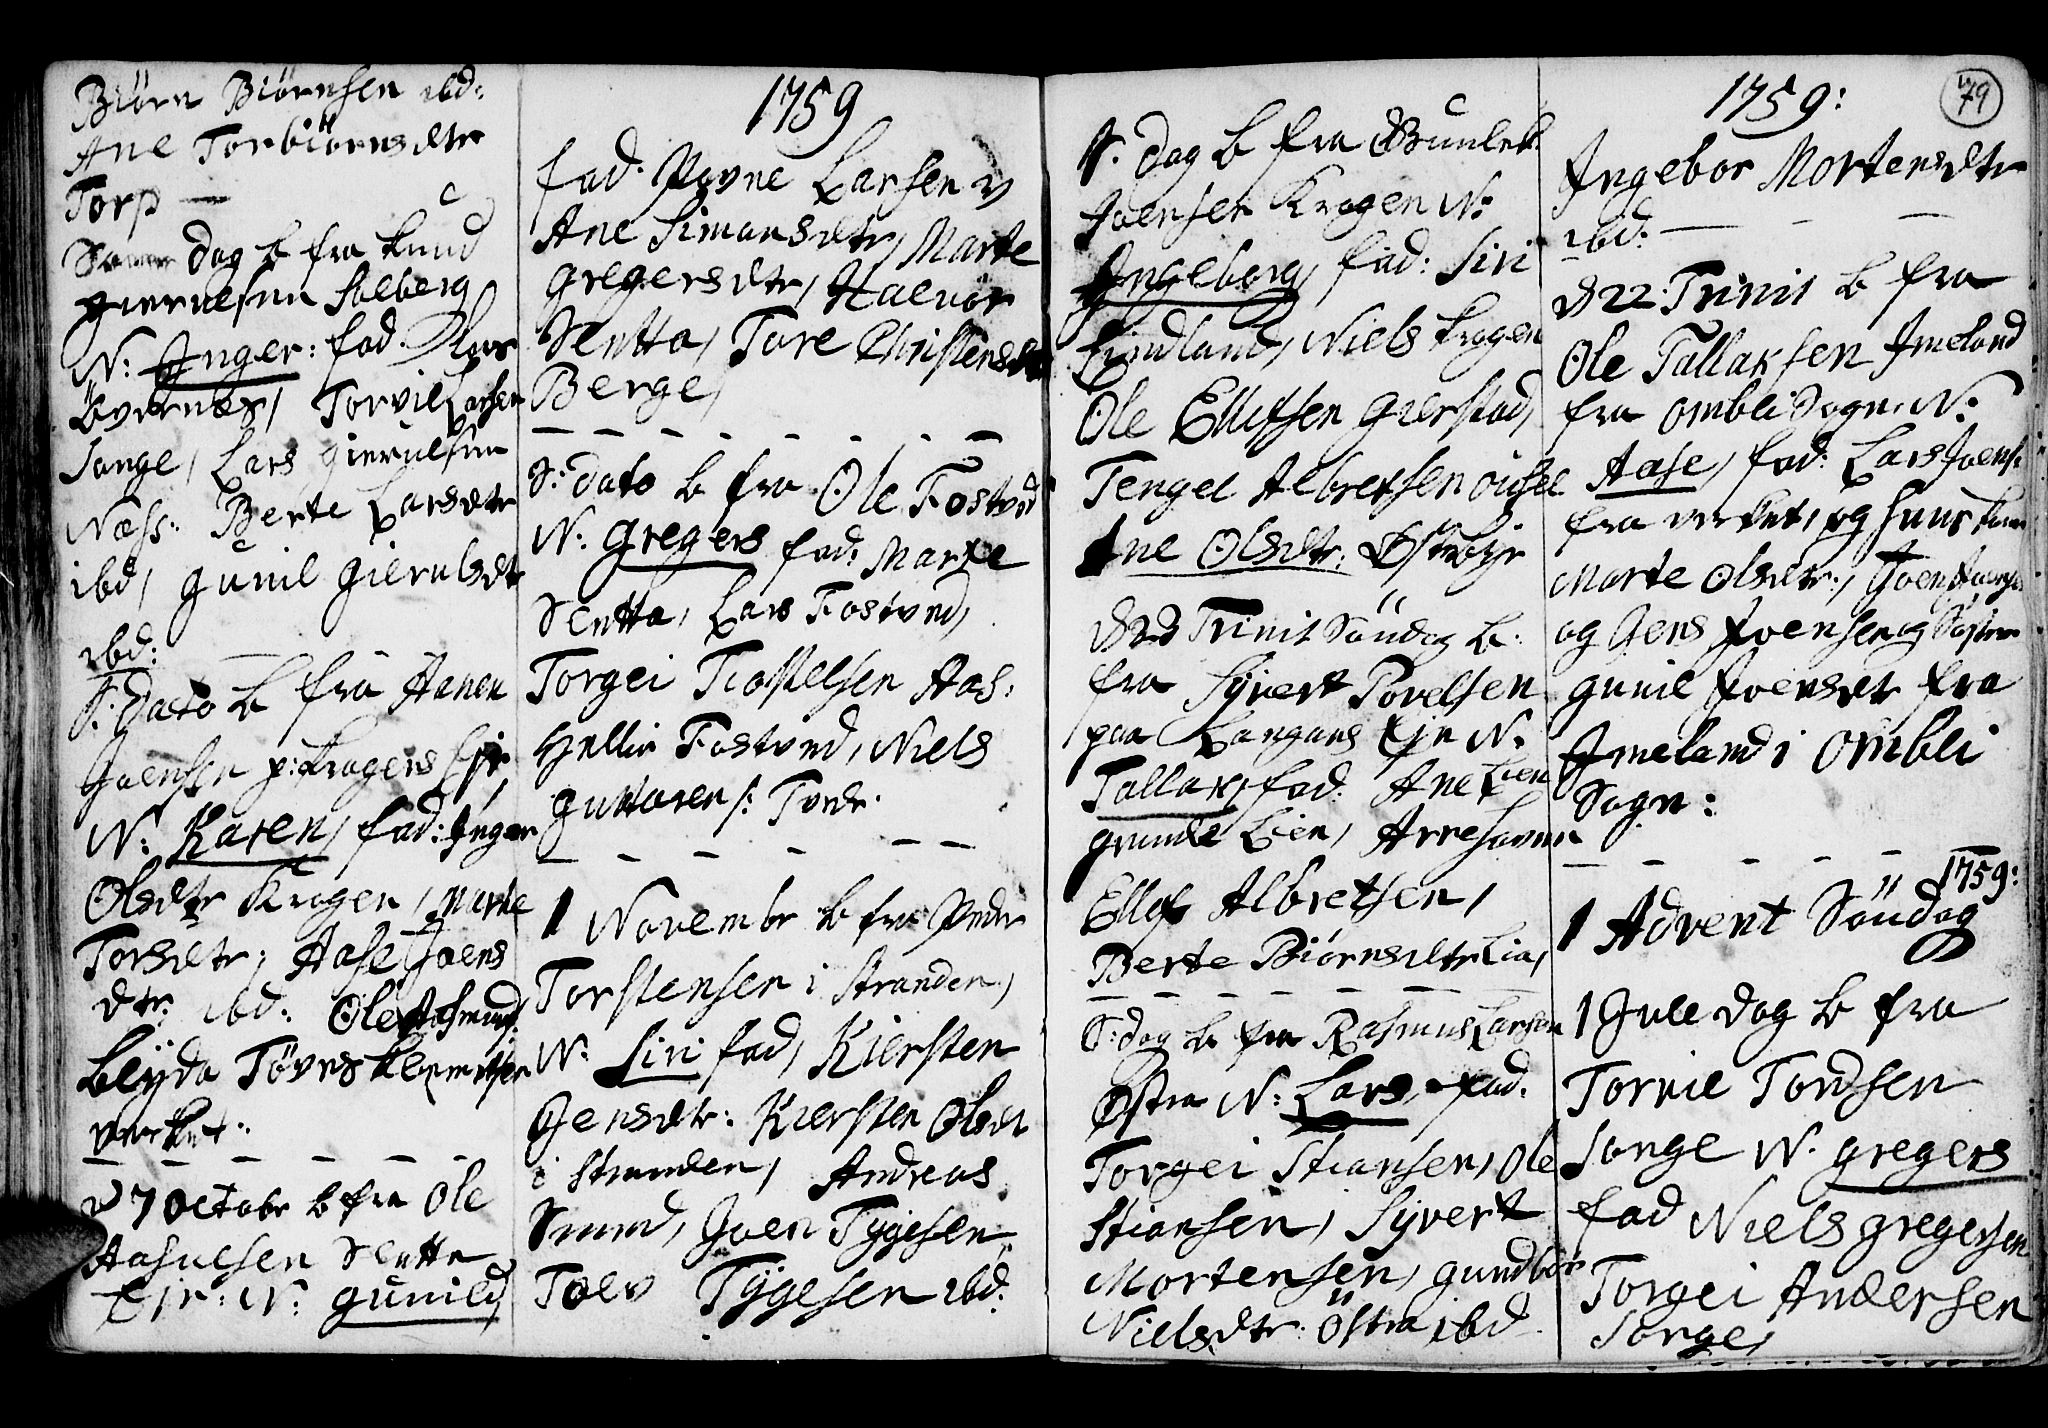 Biørn Biørnsen ibd:
Ane Torbiørnsdtr
Torp —
Samme dag b fra knud
gierulsen Solberg
N: Inger: fad.
Torvil Larsen
Songe, Lars gierulsen
Næss: Berte Larsdtr
ibd, gunil gierulsdtr
ibd:
S: dato b fra Aanen
Joensen p: kragens Eje,
N: Karen, fad: Inger
Olsdtr Kragen, Marte
Torsdtr, Aase Joens
dtr. ibd: Ole Aasmunds:
verket:
d 7 Octobr b fra Ole
Aasulsen Sletta
Eje: N: gunild,
1759
fad. Povne Larsen
Ane Simonsdtr, Marte
gregersdtr, Halvor
Sletta, Tore Christens
Berge,
S: dato b fra Ole Fostved
N: gregers fad: Marte
Sletta, Lars Fostved,
Torgei Tiostelsen Aas:
Hellie Fostved, Niels
guttoren Tvede.
1 Novembr b fra Peder
Torstensen i Stranden,
N: Siri fad, Kiersten
Jensdtr: Kiersten Olsd
i stranden, Andreas
Smed, Joen Tygesen,
Tolv Tygesen ibd:
79
S. dag b fra Gunlek
Joensen Kragen N:
Ingeborg, fad: Siri
Lindland, Niels kragen
Ole Ellefsen gierstad,
Tengel Albretsen
Ane Olsdtr: Østebye
d 23 Trinit Søndag b:
fra Syvert Povelsen
paa Langans Eje N:
Tallak, fad: Ane Lien
grunde Lien, Arne
Ellef Albretsen,
Berte Biørnsdtr Lia,
S: dag b fra Rasmus Larsen
Østra N: Lars, fad.
Torgei Stiansen, Ole
Stiansen, Syvert
Mortensen, gundbor
Nielsdtr. Östra ibd
1759:
Ingebor Mortensdtr
ibd: —
d 22: Trinit b fra
Ole Tallaksen Imeland
fra ombli Sogn. N:
Aase, fad: Lars Joens:
fra verket, og hans
Marte Olsdtr., Joen
og Jens Joensen og Søster
gunil Joensdtr fra
Imeland i ombli
Sogn:
1759:
1 Advent Söndag
1 Jule dag b fra
Torvil Tordsen
Songe N. gregers
fad Niels gregersen
Torgei Andersen
Songe,